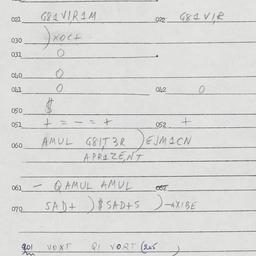 021 G81V1R1M 022 G81V1R
030 )XOC+
031 O
040 O
041 O 042 O
050 $
051 + = - = + 052 +
060 AMUL G81T3R )EJM1CN
APR1ZE,NT
061 - QAMUL AMUL
070 SAD+ )$SAD+S )-AX1BE
901 VOXT Q1 VORT